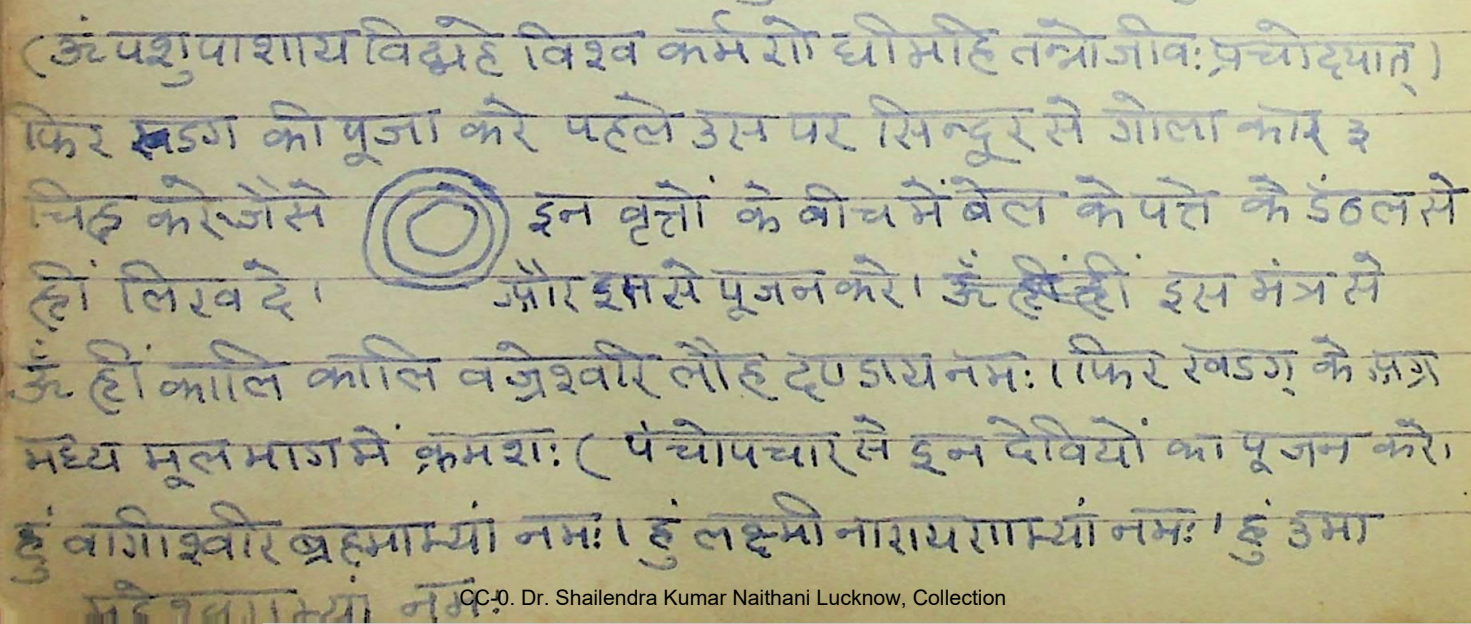 (ॐ पशुपाशाय विद्महे विश्व कर्मणे धीमहि तन्नो जीवः प्रचोदयात्)
फिर खडग की पूजा करे पहले उस पर सिन्दूर से गोला कार ३
चिह्न करे जैसे इन वृत्तों के बीच में बेल के पत्ते के डंठल से
ह्रीं लिख दे। और इस से पूजन करे। ॐ ह्रीं इस मंत्र से
ॐ ह्रीं कालि कालि वज्रेश्वरि लौह दण्डाय नमः। फिर खडग् के अग्र
मध्य मूल भाग में क्रमशः ( पंचोपचार से इन देवियों का पूजन करे।
हुं वागीश्वरि ब्रह्माभ्यां नमः। हुं लक्ष्मी नारायणाभ्यां नमः। हुं उमा
महेश्वराभ्यां नमः
CC-0. Dr. Shailendra Kumar Naithani Lucknow, Collection